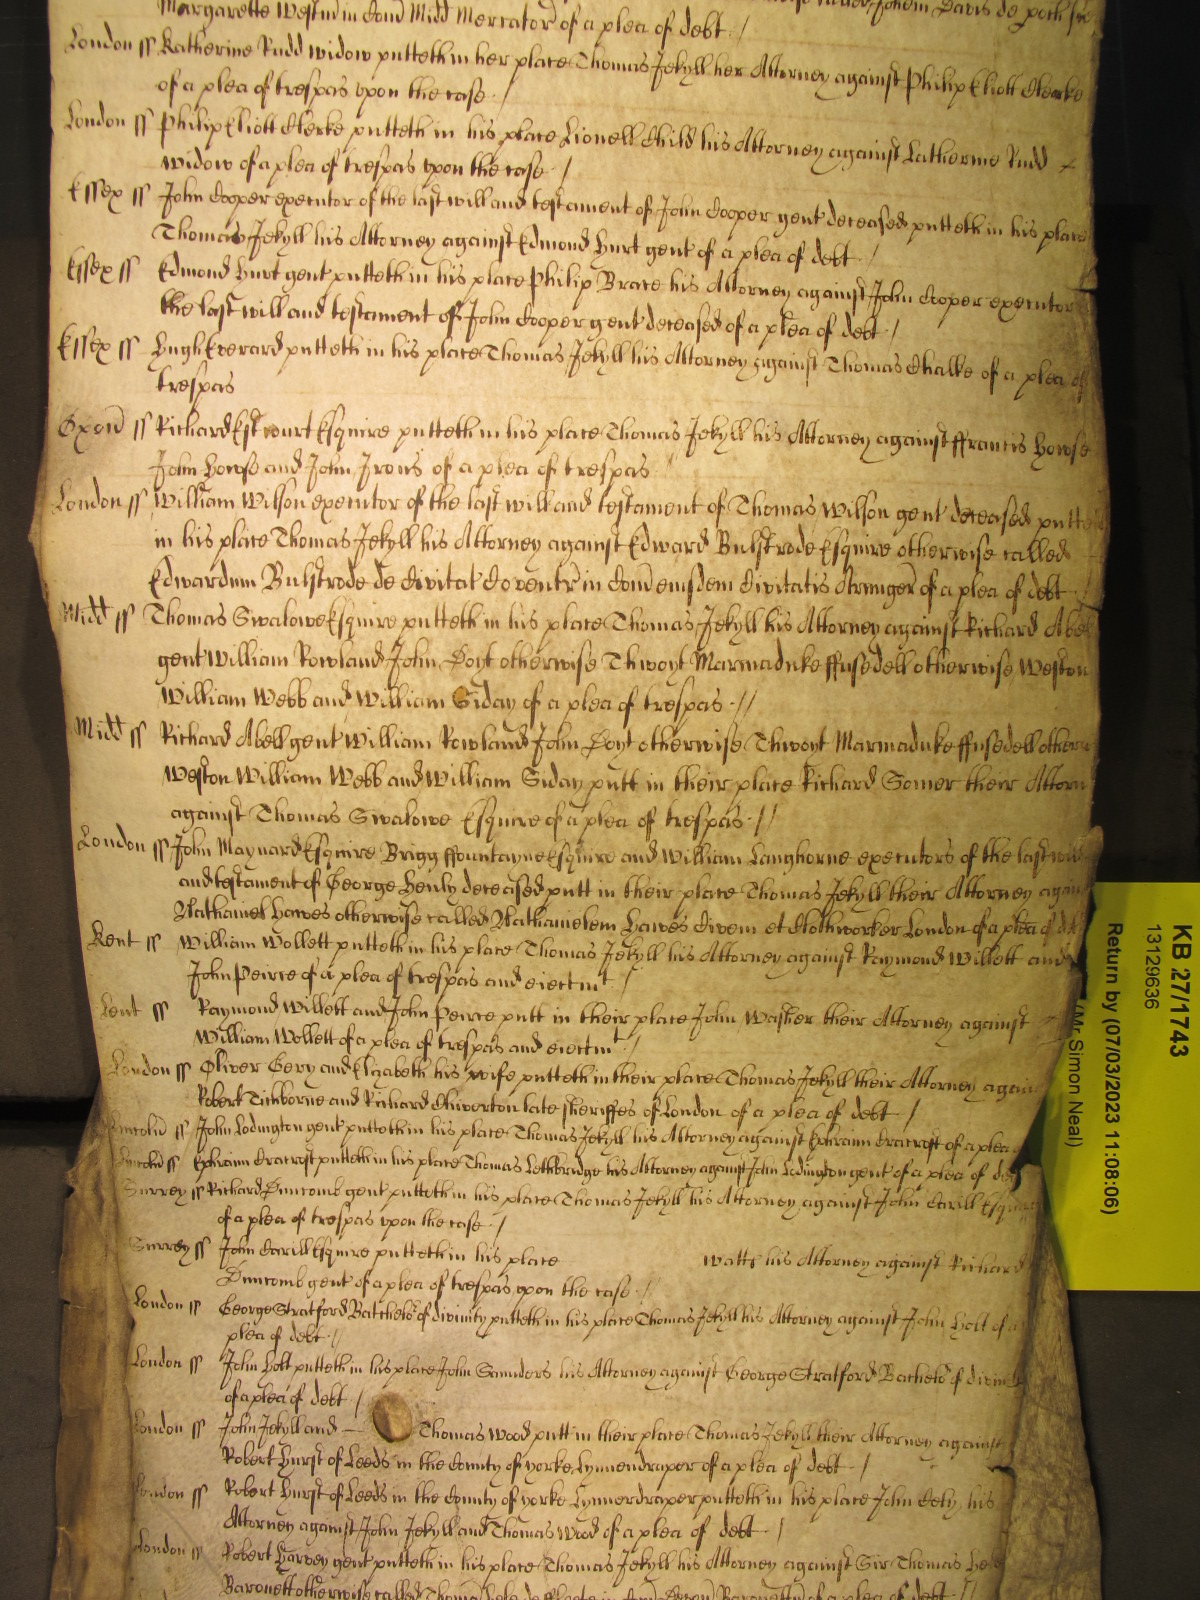 Margarette Westm in Com Midd Mercator of a plea of debt /
London ss Katherine Rudd widow putteth in her place Thomas Jekyll her Attorney against Philip Elliott Clerke
of a plea of trespas upon the case /
London ss Philip Elliott Clerke putteth in his place Lionell Child his Attorney against Katherine Rudd
widow of a plea of trespas upon the case /
Essex ss John Cooper executor of the last will and testament of John Cooper gent deceased putteth in his place
Thomas Jekyll his Attorney against Edmond Hurt gent of a plea of debt /
Essex ss Edmond Hurt gent putteth in his place Philip Brace his Attorney against John Cooper executor
the last will and testament of John Cooper gent deceased of a plea of debt /
Essex ss Hugh Everard putteth in his place Thomas Jekyll his Attorney against Thomas Chalke of a plea of
trespas
Oxon ss Richard Estcourt Esquire putteth in his place Thomas Jekyll his Attorney against ffrancis Howse
John Howse and John Irons of a plea of trespas /
London ss William Wilson executor of the last will and testament of Thomas Wilson gent deceased putte
in his place Thomas Jekyll his Attorney against Edward Bulstrode Esquire otherwise called
Edwardum Bulstrode de Civitat Coventr in Com eiusdem Civitatis of a plea of debt
Midd ss Thomas Swalowe Esquire putteth in his place Thomas Jekyll his Attorney against Richard Abell
gent William Rowland John Doyt otherwise Thwoyt Marmaduke ffusedell otherwise Weston
William Webb and William Siday of a plea of trespas //
Midd ss Richard Abell gent William Rowland John Doyt otherwise Thwoyt Marmaduke ffusedell otherw
Weston William Webb and William Siday putt in their place Richard Somer their Attorn
against Thomas Swalowe Esquire of a plea of trespas //
London ss John Maynard Esquire Brigg ffountayne Esquire and William Langhorne executors of the last will
and testament of George Henly deceased putt in their place Thomas Jekyll their Attorney again
Nathaniel Hawes otherwise called Nathanielem Hawes Civem et Clothworker London of a plea of de
Kent ss William Wollett putteth in his place Thomas Jekyll his Attorney against Raymond Willett and
John Peirce of a plea of trespas and eiectmt /
Kent ss Raymond Willett and John Peirce putt in their place John Washer their Attorney against
William Wollett of a plea of trespas and eiectmt /
London ss Oliver Gery and Elizabeth his wife putteth in their place Thomas Jekyll their Attorney again
Robert Tichborne and Richard Chiverton late sheriffes of London of a plea of debt /
Lincoln ss John Lodington gent putteth in his place Thomas Jekyll his Attorney against Ephraim Cracroft of a plea
Lincoln ss Ephraim Cracroft putteth in his place Thomas Lethbridge his Attorney against John Lodington gent of a plea of de
Surrey ss Richard Duncomb gent putteth in his place Thomas Jekyll his Attorney against John Carill Esquire
of a plea of trespas upon the case /
Surrey ss John Carill Esquire putteth in his place Watts his Attorney against Richard
Duncomb gent of a plea of trespas upon the case /
London ss George Stratford Batchelor of divinity putteth in his place Thomas Jekyll his Attorney against John Holt of a
plea of debt //
London ss John Holt putteth in his place John Saunders his Attorney against George Stratford Bachelor of divini
of a plea of debt /
London ss John Jekyll and — Thomas Wood putt in their place Thomas Jekyll their Attorney against
Robert Hurst of Leeds in the County of Yorke Lynnendraper of a plea of debt /
London ss Robert Hurst of Leeds in the County of Yorke Lynnerdraper putteth in his place John Cely his
Attorney against John Jekyll and Thomas Wood of a plea of debt /
London ss Robert Harvey gent putteth in his place Thomas Jekyll his Attorney against Sir Thomas
Baronett otherwise called Thomas Baronett of a plea of debt //
KB 27/1743
13129636
Return by (07/03/2023 11:08:06)
(Mr Simon Neal)